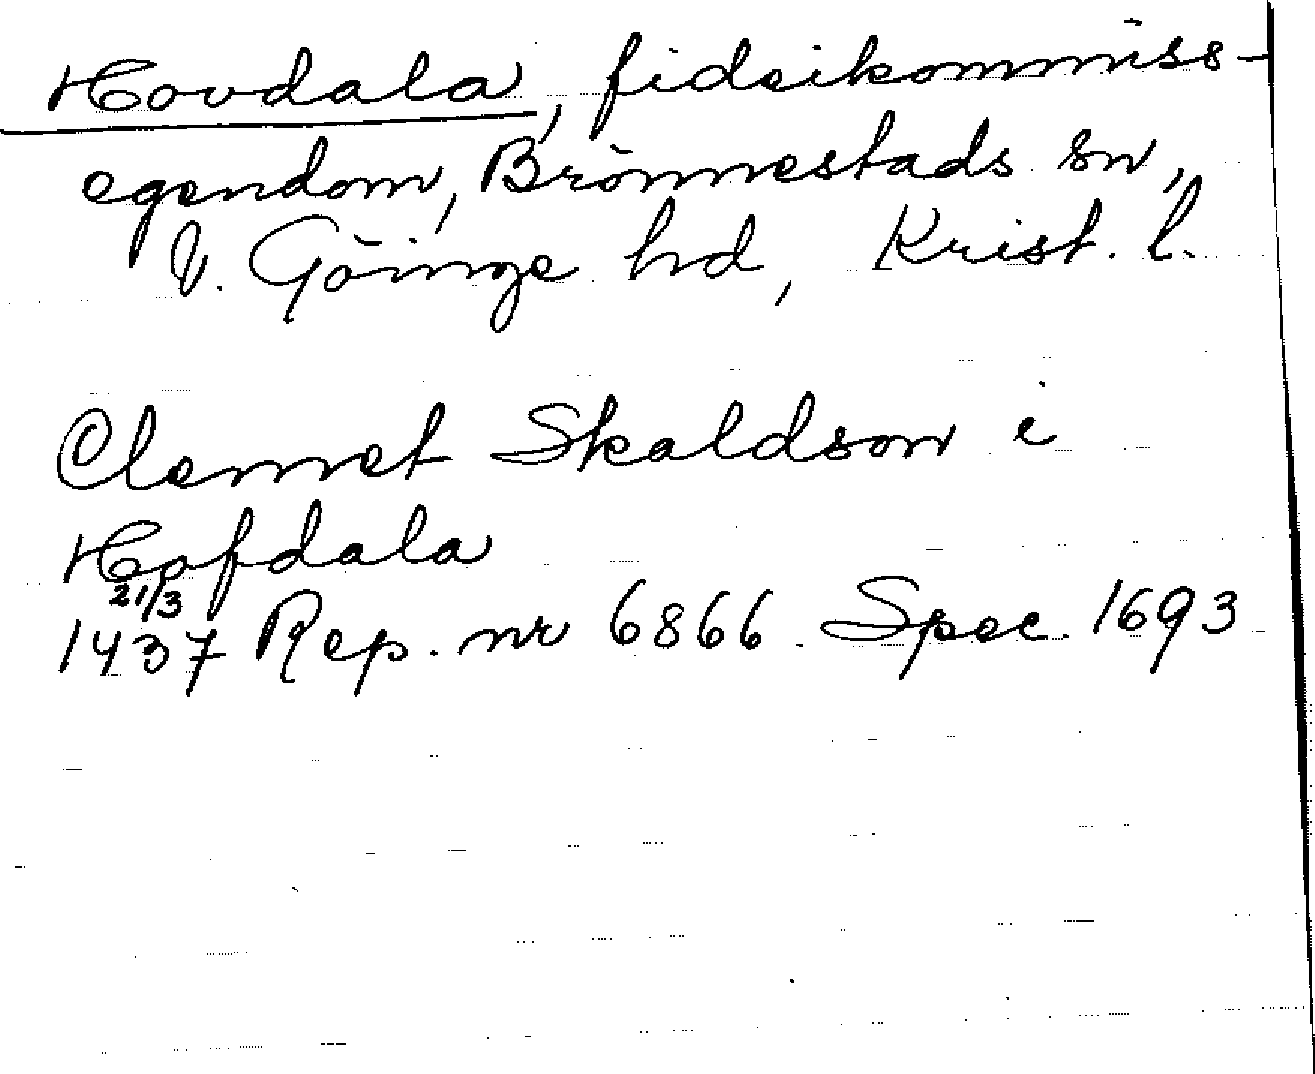 Hovdala, fideikommiss-
egendom, Brönnestads sn,
V. Göinge hd, Krist. l.
Clemet Skaldson i
Hofdala
21/3
1437 Rep. nr 6866. Spec. 1693